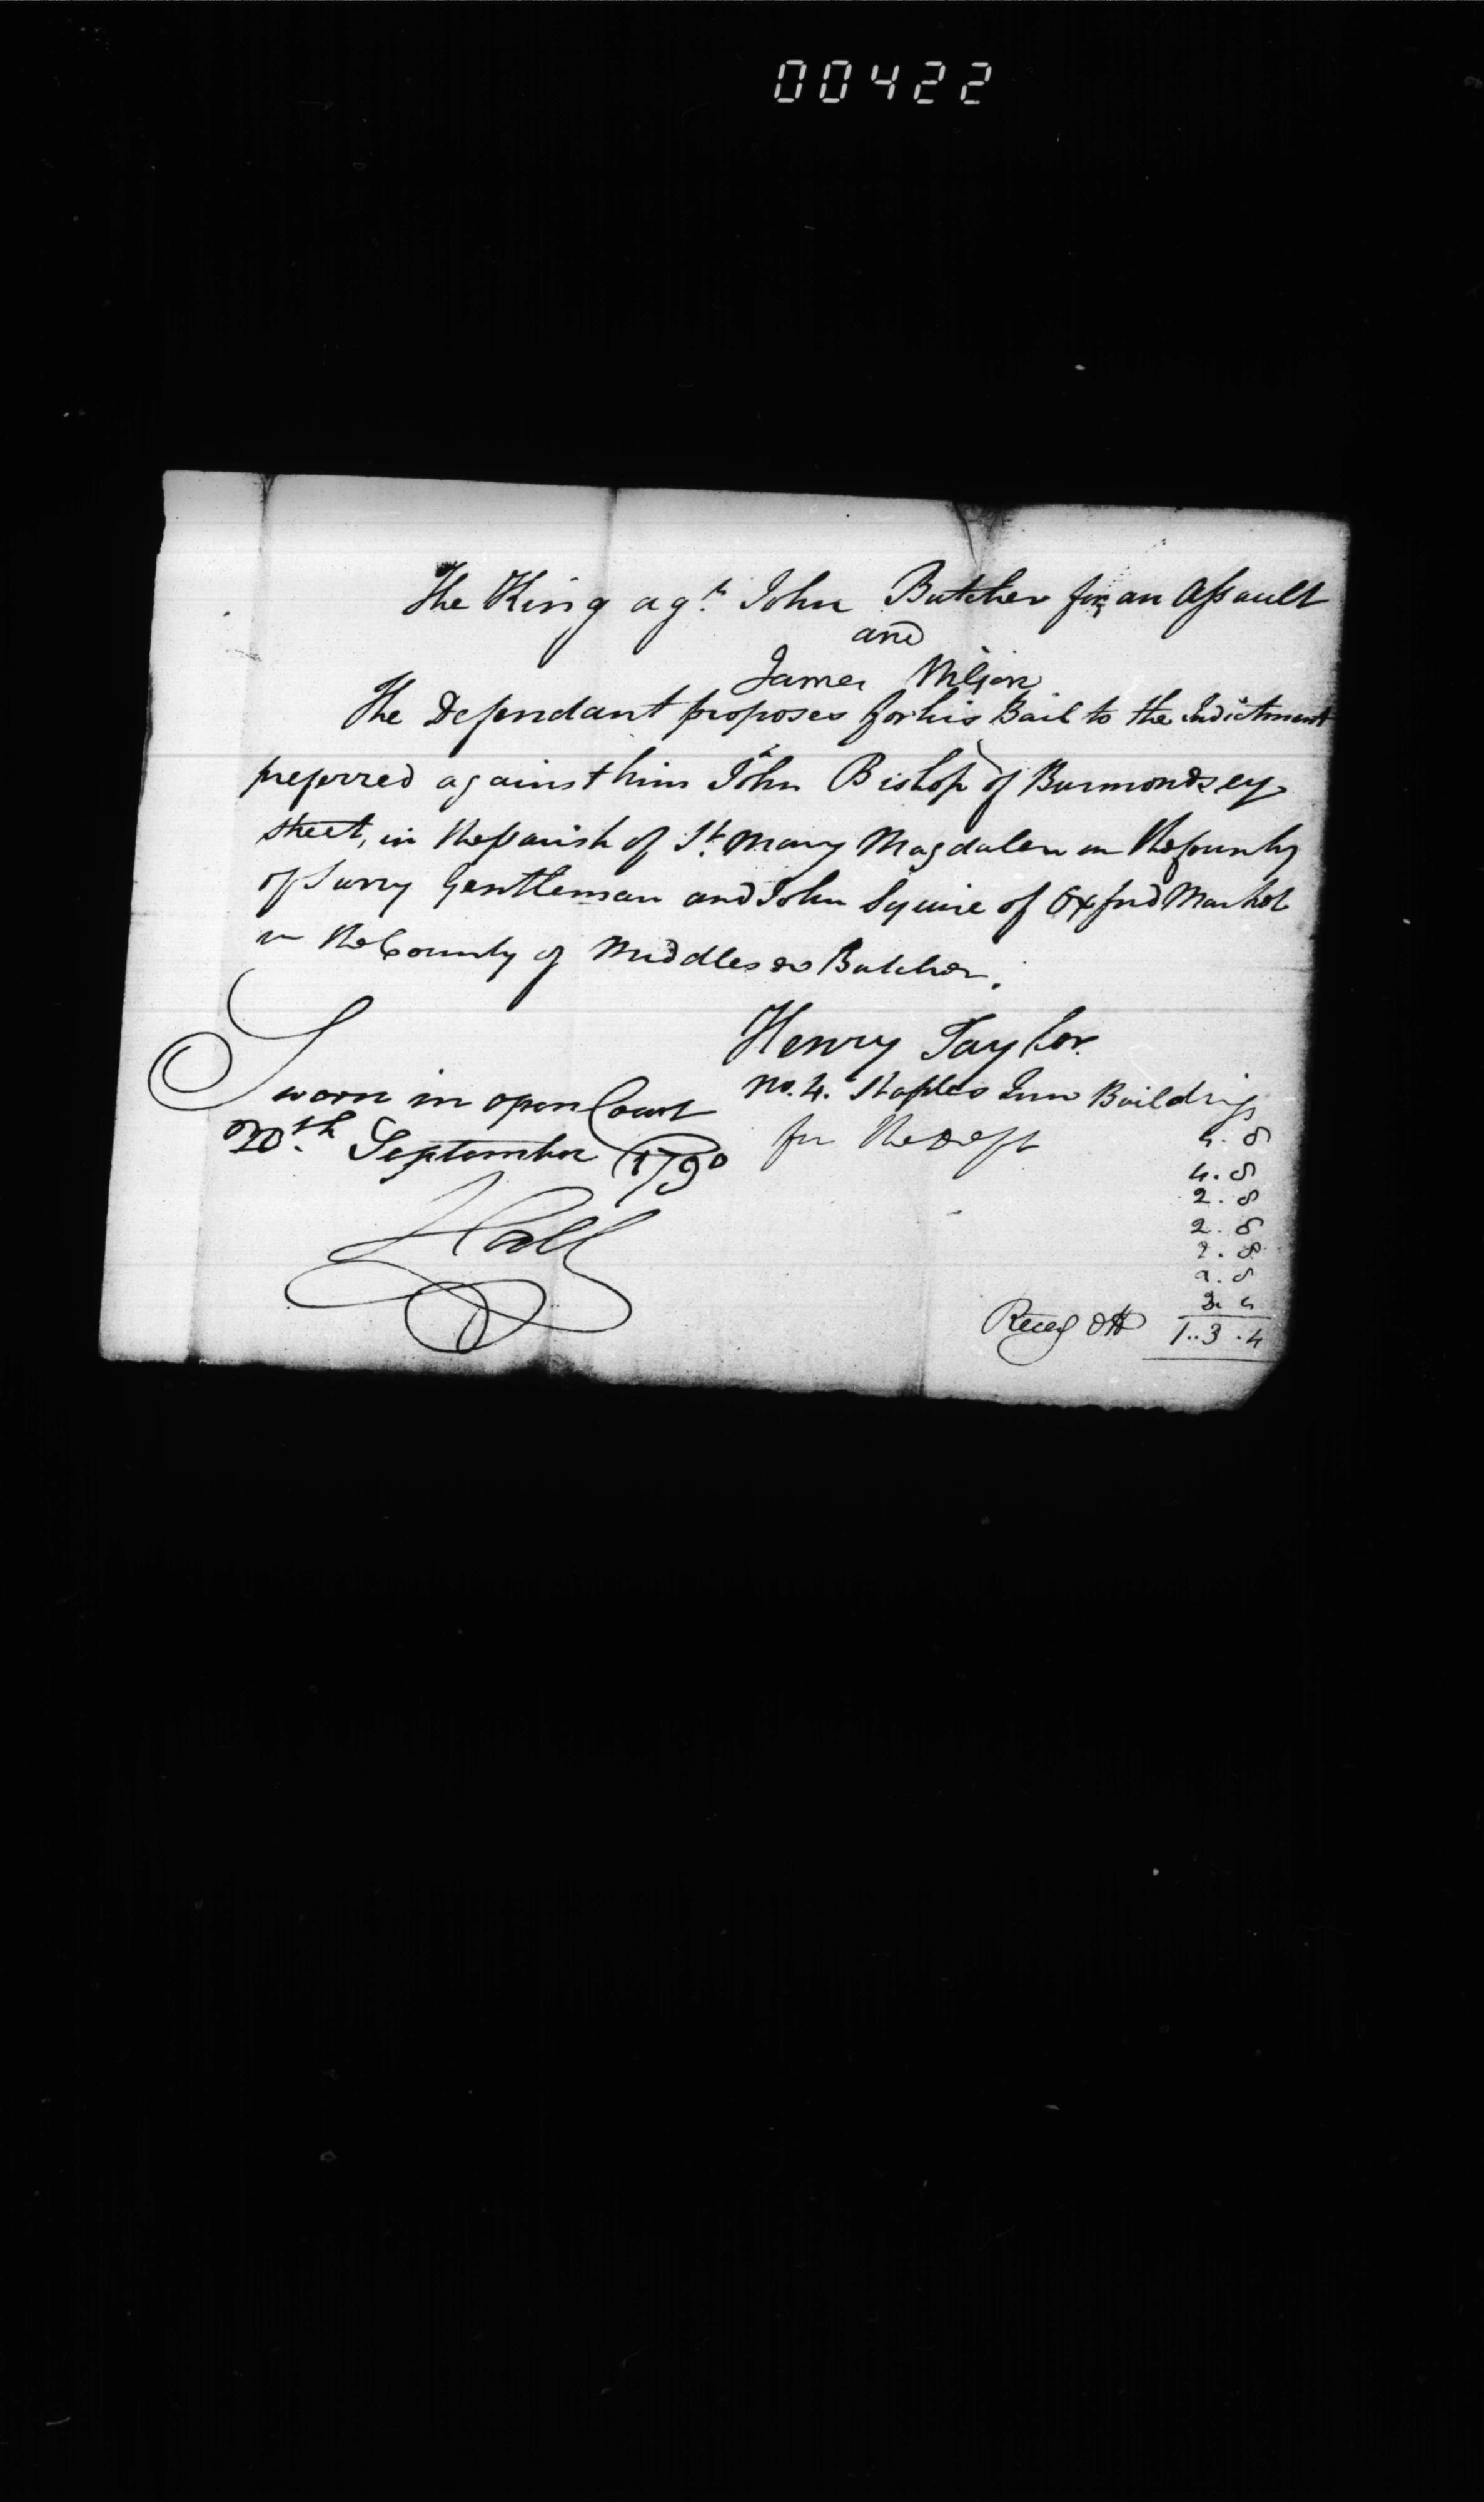 00422
The King agt. John Butcher for an Assault
and
James Wilson
The Defendant proposes for his Bail to the Indictment
preferred against him John Bishop of Burmondsey
Street, in the Parish of St. Mary Magdalen in the County
of Surry Gentleman and John Squire of Oxford Market
in the County of Middlesex Butcher.
Henry Taylor
No. 4. Staples Inn Buildings
for the Deft
Sworn in open Court
20th. September 1790
Hall
4.8
4.8
2.8
2.8
2.8
2.8
3.4
Reced 1..3.4